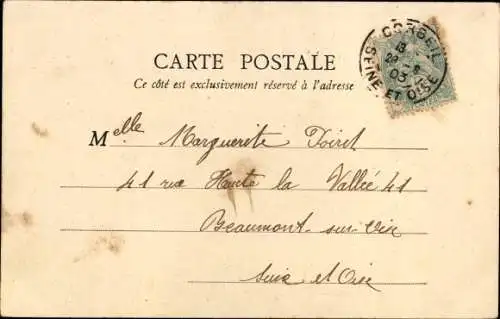 CARTE POSTALE
Ce côté est exclusivement réservé à l'adresse
CORBEIL
SEINE ET OISE
13
03
Melle Marguerite Poiret
41 rue Haute la Vallée 41
Beaumont-sur-Oise
Seine et Oise